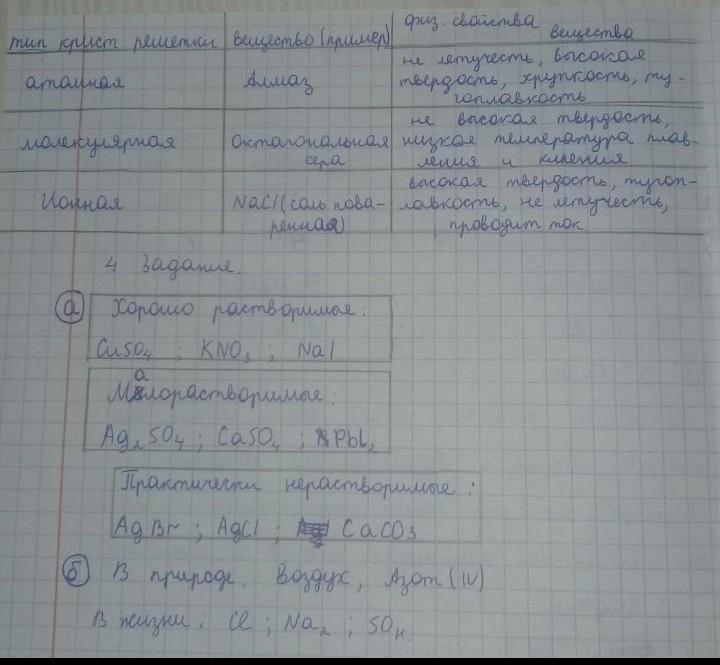 тип крист. решетки вещество (пример) физ. свойства вещества
атомная Алмаз не летучесть, высокая твердость, хрупкость, ту-
гоплавкость
молекулярная Октагональная сера не высокая твердость, низкая температура плав-
ления и кипения
Ионная NaCl (соль пова-
ренная) высокая твердость, тугоп-
лавкость, не летучесть, проводит ток
4 Задание.
а Хорошо растворимые:
CuSO4 ; KNO3 ; NaI
Малорастворимые:
Ag2SO4 ; CaSO4 ; PbI2
Практически нерастворимые:
AgBr ; AgCl ; CaCO3
б В природе: Воздух, Азот (IV)
В жизни: Cl ; Na2 ; SO4.